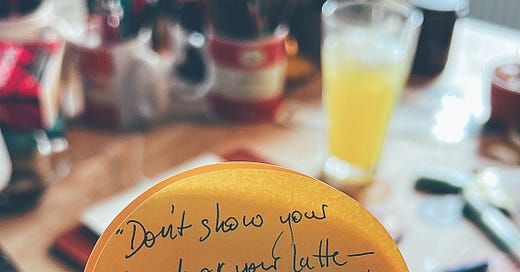 "Don't show your
your latte –